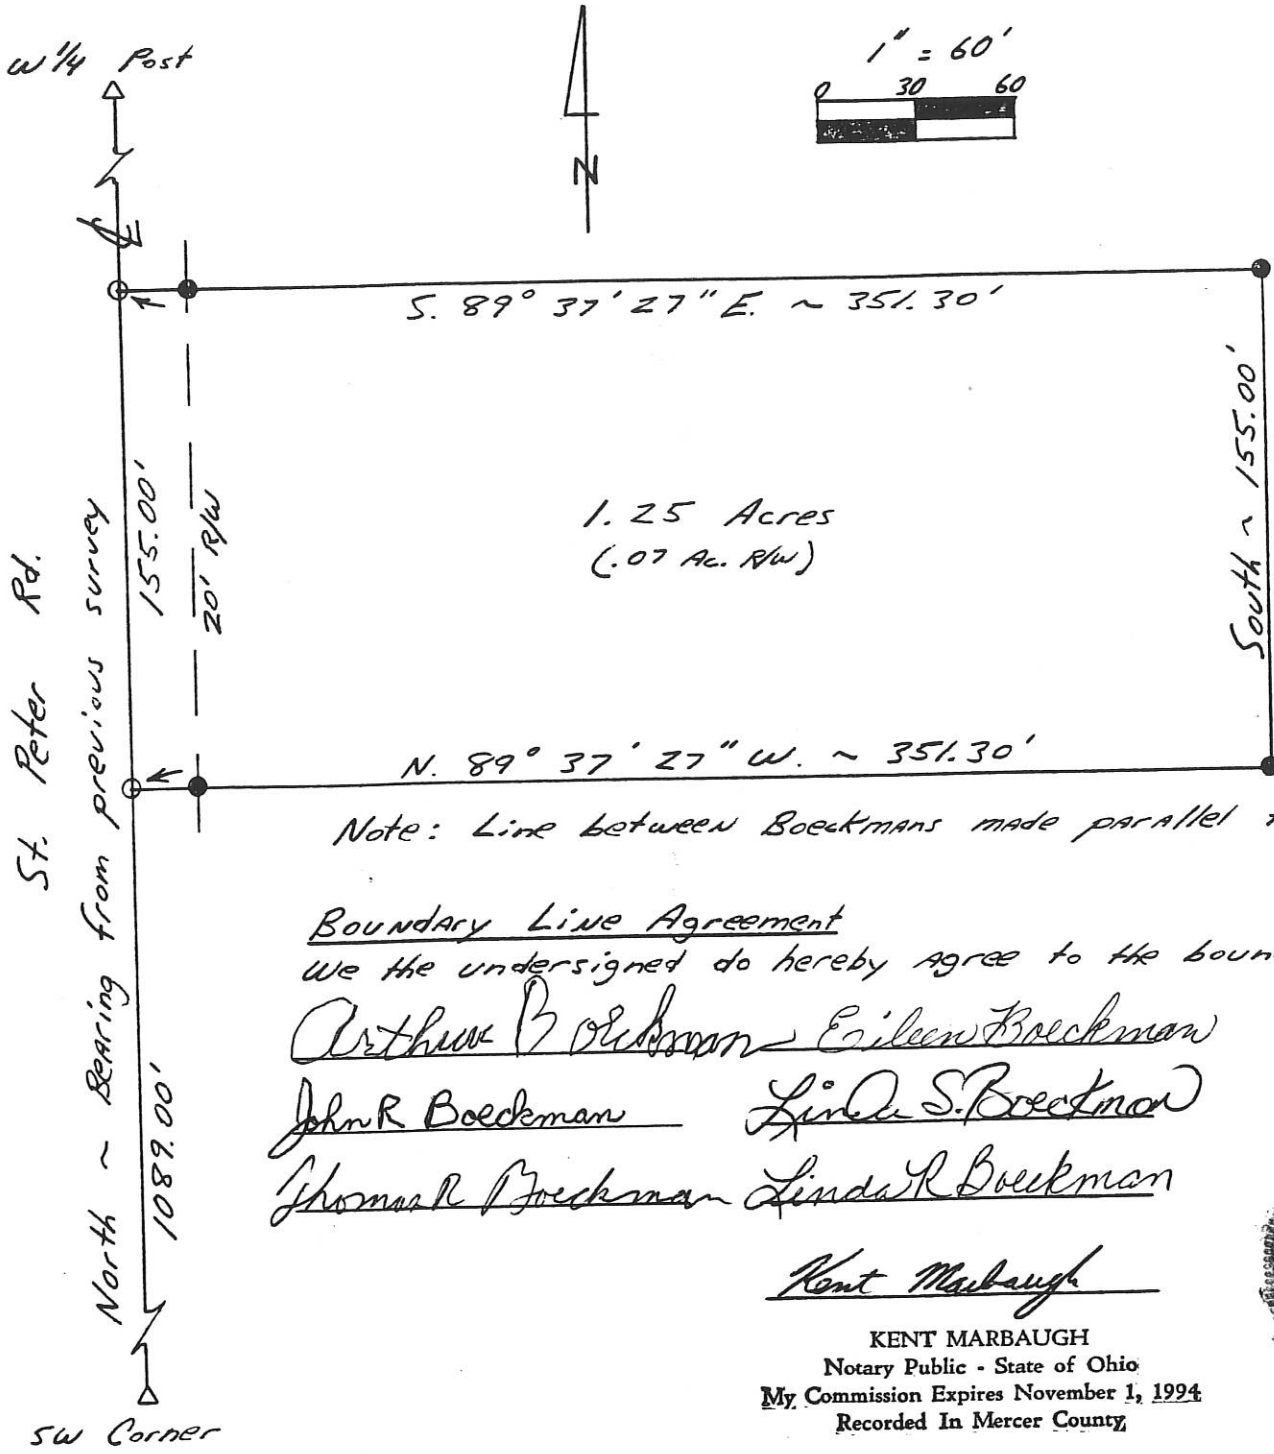 W 1/4 Post
1" = 60'
0 30 60
N
S. 89° 37' 27" E. ~ 351.30'
155.00'
20' R/W
South ~ 155.00'
1.25 Acres
(.07 Ac. R/W)
St. Peter Rd.
North ~ Bearing from previous survey
N. 89° 37' 27" W. ~ 351.30'
Note: Line between Boeckmans made parallel
Boundary Line Agreement
We the undersigned do hereby agree to the boun
Arthur Boeckman Eileen Boeckman
John R Boeckman Linda S. Boeckman
Thomas R Boeckman Linda R Boeckman
1089.00'
Kent Marbaugh
KENT MARBAUGH
Notary Public - State of Ohio
My Commission Expires November 1, 1994
Recorded In Mercer County
SW Corner